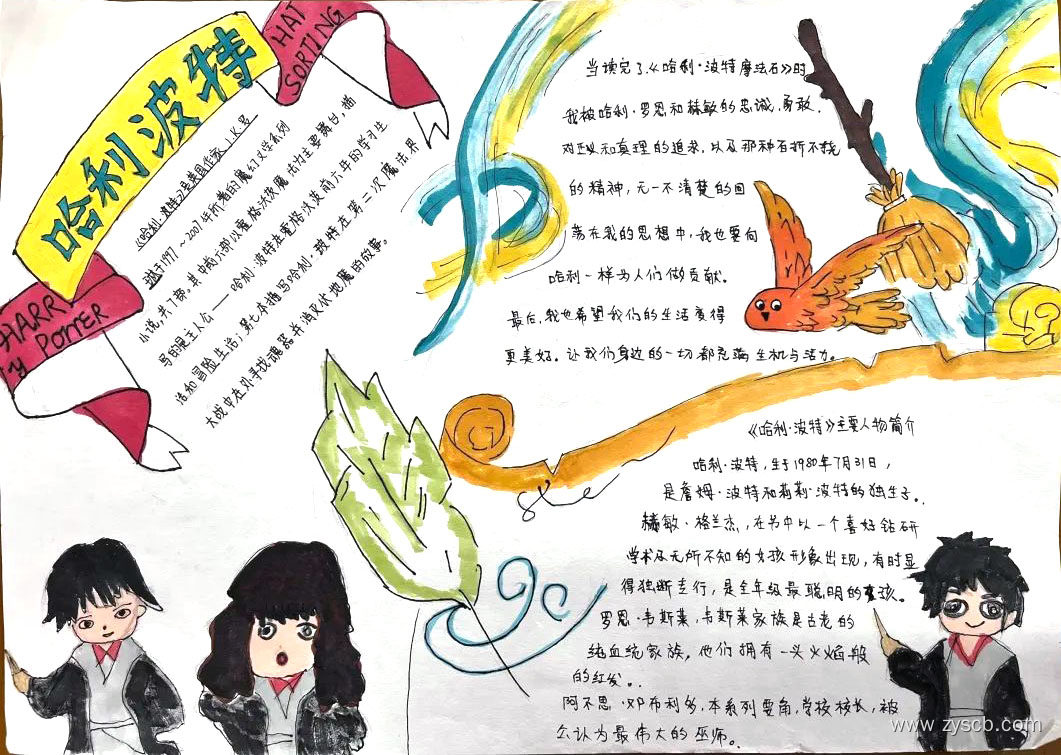 哈利波特
HAT
SORTING
HARRY
POTTER
《哈利·波特》是英国作家J.K.罗
琳于1997~2007年所著的魔幻文学系列
小说,共7部。其中前六部以霍格沃茨魔法学校为主要舞台,描
写的是主人公——哈利·波特在霍格沃茨前六年的学习生
活和冒险生活;第七本描写哈利·波特在第二次魔法界
大战中在外寻找魂器并消灭伏地魔的故事。
当读完了《哈利·波特魔法石》时
我被哈利·罗恩和赫敏的忠诚,勇敢.
对正义和真理的追求,以及那种百折不挠
的精神,无一不清楚的回
荡在我的思想中,我也要向
哈利一样为人们做贡献.
最后,我也希望我们的生活变得
更美好。让我们身边的一切都充满生机与活力。
《哈利·波特》主要人物简介
哈利·波特,生于1980年7月31日,
是詹姆·波特和莉莉·波特的独生子。
赫敏·格兰杰,在书中以一个喜好钻研
学术及无所不知的女孩形象出现,有时显
得独断专行,是全年级最聪明的女孩。
罗恩·韦斯莱,韦斯莱家族是古老的
纯血统家族,他们拥有一头火焰般
的红发。
阿不思·邓布利多,本系列要角,学校校长,被
公认为最伟大的巫师。
www.zyscb.com